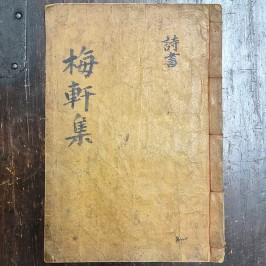 梅軒集
詩書